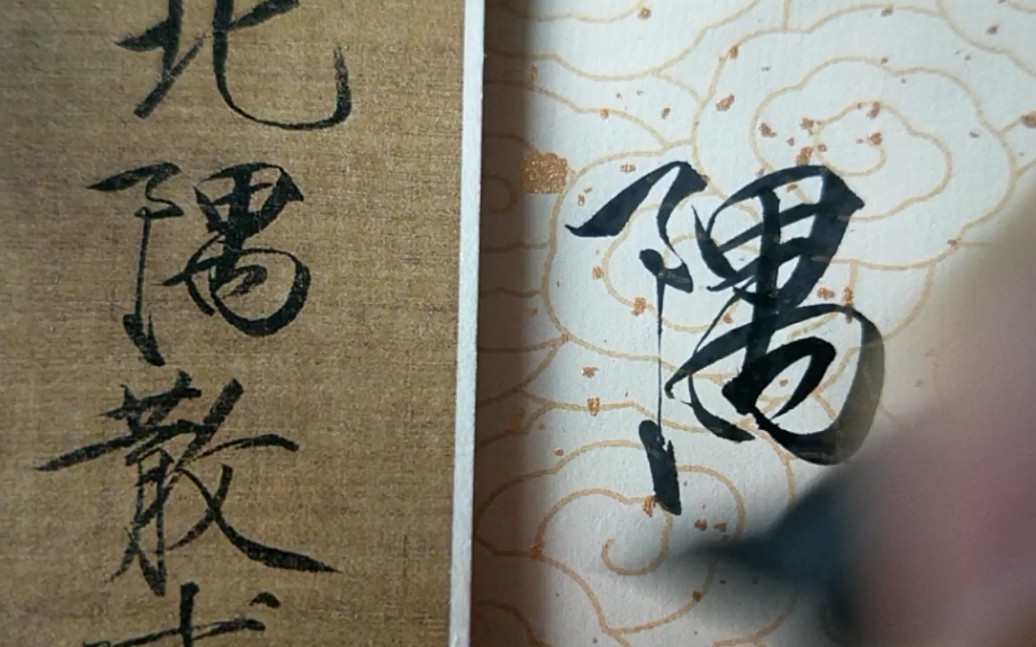 北隅散
隅